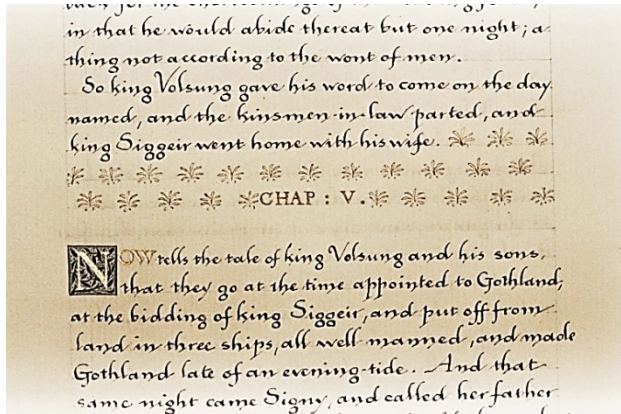 in that he would abide thereat but one night; a
thing not according to the wont of men.
So king Volsung gave his word to come on the day
named, and the kinsmen-in-law parted, and
king Siggeir went home with his wife.
CHAP : V.
NOW tells the tale of king Volsung and his sons,
that they go at the time appointed to Gothland,
at the bidding of king Siggeir, and put off from
land in three ships, all well manned, and made
Gothland late of an evening-tide. And that
same night came Signy, and called her father